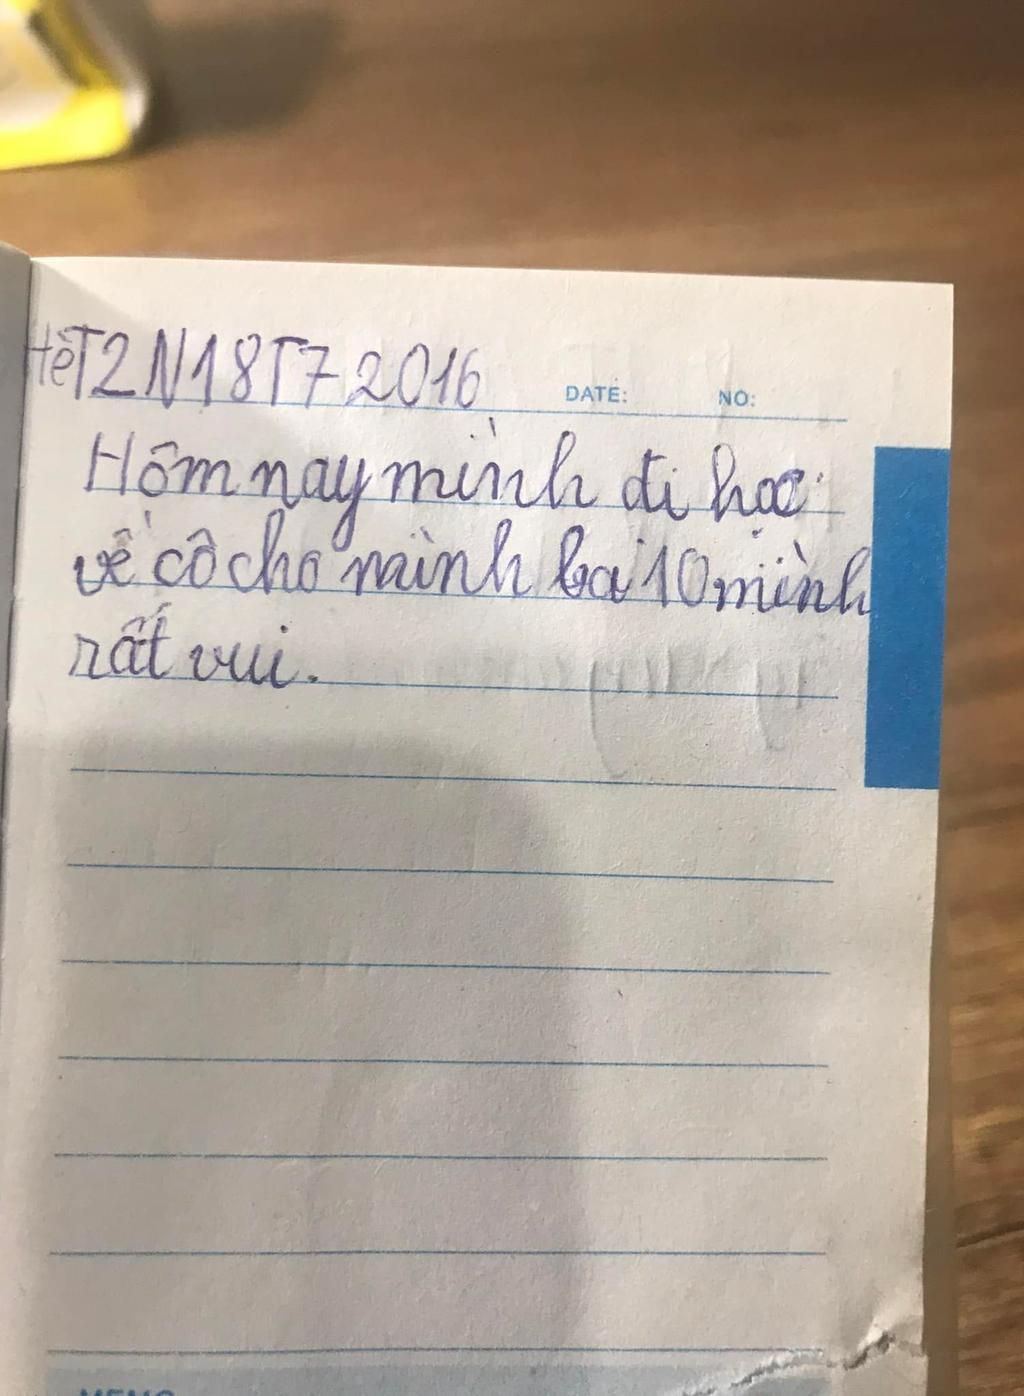 Hè T2 N18 T7 2016
DATE: NO:
Hôm nay mình đi học
về cô cho mình ba 10 mình
rất vui.
MEMO